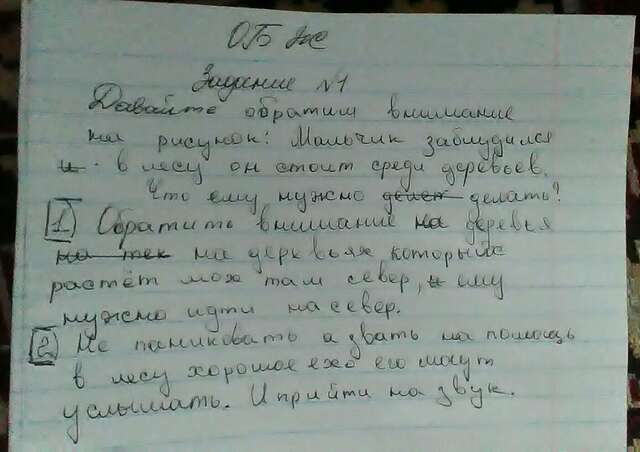 ОБЖ
Задание №1
Давайте обратим внимание
на рисунок: Мальчик заблудился
и в лесу он стоит среди деревьев.
Что ему нужно делать?
1 Обратить внимание на деревья
на тех на деревьях которых
растёт мох там север, и ему
нужно идти на север.
2 Не паниковать а звать на помощь
в лесу хорошое ехо его могут
услышать. И прийти на звук.